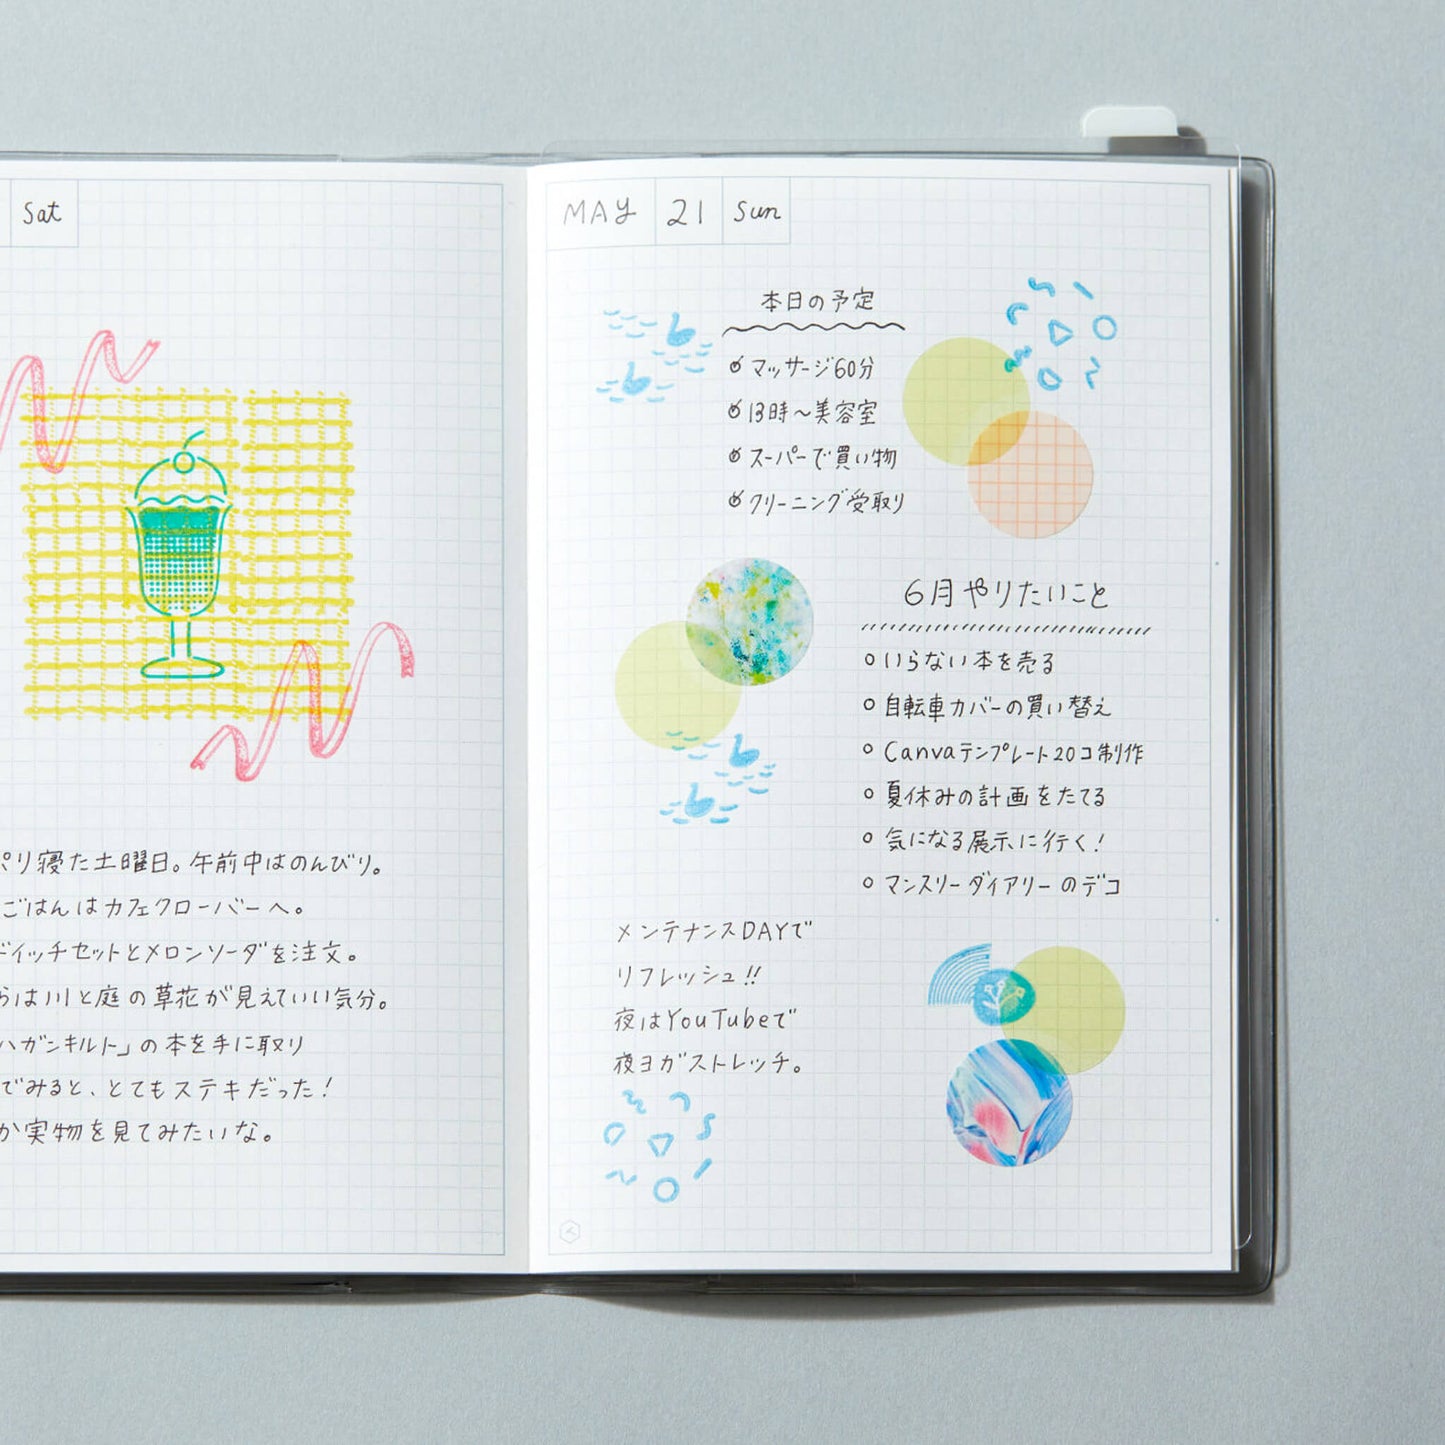 Sat
パリ寝た土曜日。午前中はのんびり。
ごはんはカフェクローバーへ。
ドイッチセットとメロンソーダを注文。
らは川と庭の草花が見えていい気分。
ハガンキルト」の本を手に取り
でみると、とてもステキだった!
か実物を見てみたいな。
MAY 21 Sun
本日の予定
マッサージ60分
13時〜美容室
スーパーで買い物
クリーニング受取り
6月やりたいこと
いらない本を売る
自転車カバーの買い替え
Canvaテンプレート20コ制作
夏休みの計画をたてる
気になる展示に行く!
マンスリーダイアリーのデコ
メンテナンスDAYで
リフレッシュ!!
夜はYouTubeで
夜ヨガストレッチ。